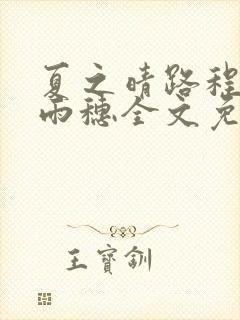 夏之晴路程
雨穗全文免
王寶釧